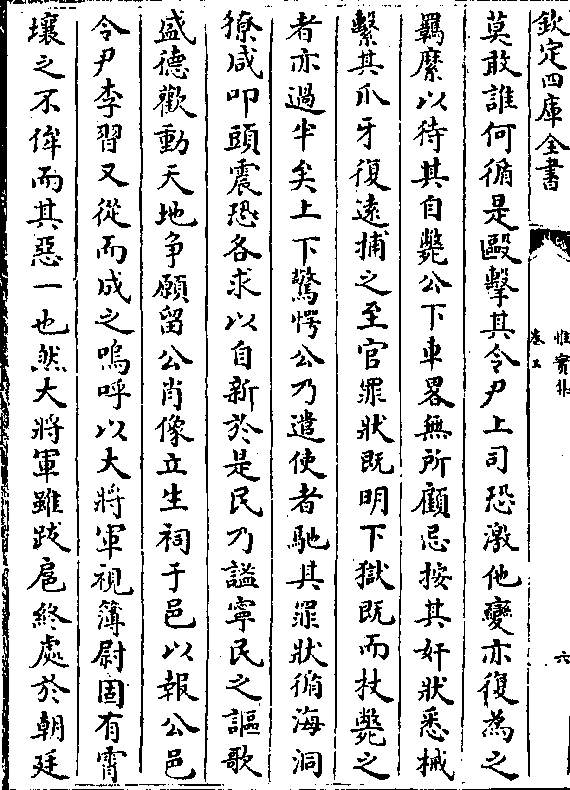 欽定四庫全書
惟實集
卷五
六
莫敢誰何循是毆擊其令尹上司恐激他變亦復為之
羈縻以待其自斃公下車畧無所顧忌按其奸狀悉械
繫其爪牙復遠捕之至官罪狀既明下獄既而杖斃之
者亦過半矣上下驚愕公乃遣使者馳其罪狀徇海洞
獠咸叩頭震恐各求以自新於是民乃謐寧民之謳歌
盛德歡動天地争願留公肖像立生祠于邑以報公邑
令尹李習又從而成之嗚呼以大將軍視簿尉固有霄
壤之不侔而其惡一也然大將軍雖跋扈終處於朝廷